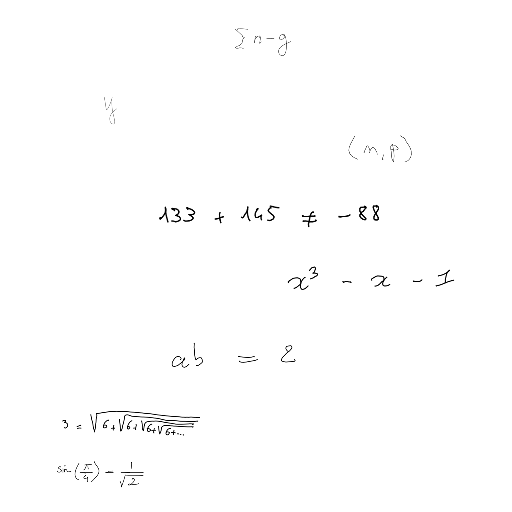 ∑n-g
(n,p)
133 + 145 ≠ -88
x³ - x - 1
ab = 2
3 = √(6+√(6+√(6+√(6+...
sin(π/4) = 1/√2